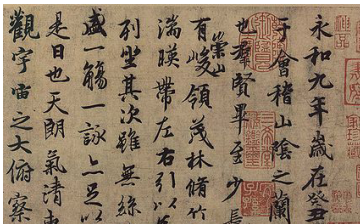 永和九年歲在癸丑
于會稽山陰之蘭
也羣賢畢至少長
有崇山峻領茂林脩竹
湍暎帶左右引以
列坐其次雖無絲
盛一觴一詠亦足以
是日也天朗氣清
觀宇宙之大俯察